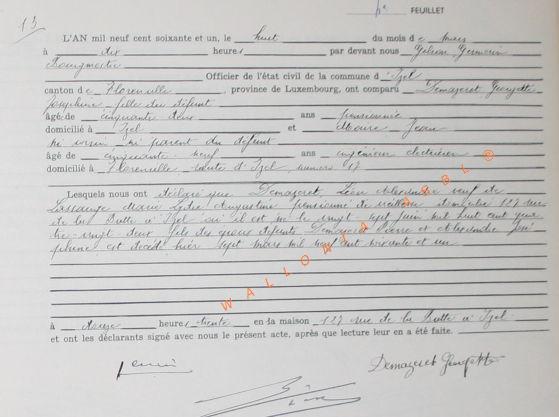 13
6e FEUILLET
L'AN mil neuf cent soixante et un, le huit du mois de mars
à dix heures par devant nous Gérin Germain
Officier de l'état civil de la commune d' Izel
canton de Florenville, province de Luxembourg, ont comparu Demazeret Georgette
Joséphine fille du défunt
âgé de cinquante deux ans pensionnée
domicilié à Izel et Moure Jean
ni voisin ni parent du défunt
âgé de cinquante neuf ans ingénieur électricien
domicilié à Florenville route d'Izel, numéro 17
Lesquels nous ont déclaré que Demazeret Léon Alexandre veuf de
Marie Lydie Augustine pensionné de vieillesse domicilié 127 rue
de la à Izel où il est né le vingt sept juin mil huit cent quatre
vingt deux fils des époux défunts Demazeret Pierre et Alexandre José
phine est décédé hier sept mars mil neuf cent soixante et un
WALLONIA ASBL ©
à heures trente en la maison 127 rue de la à Izel
et ont les déclarants signé avec nous le présent acte, après que lecture leur en a été faite.
Demazeret Georgette